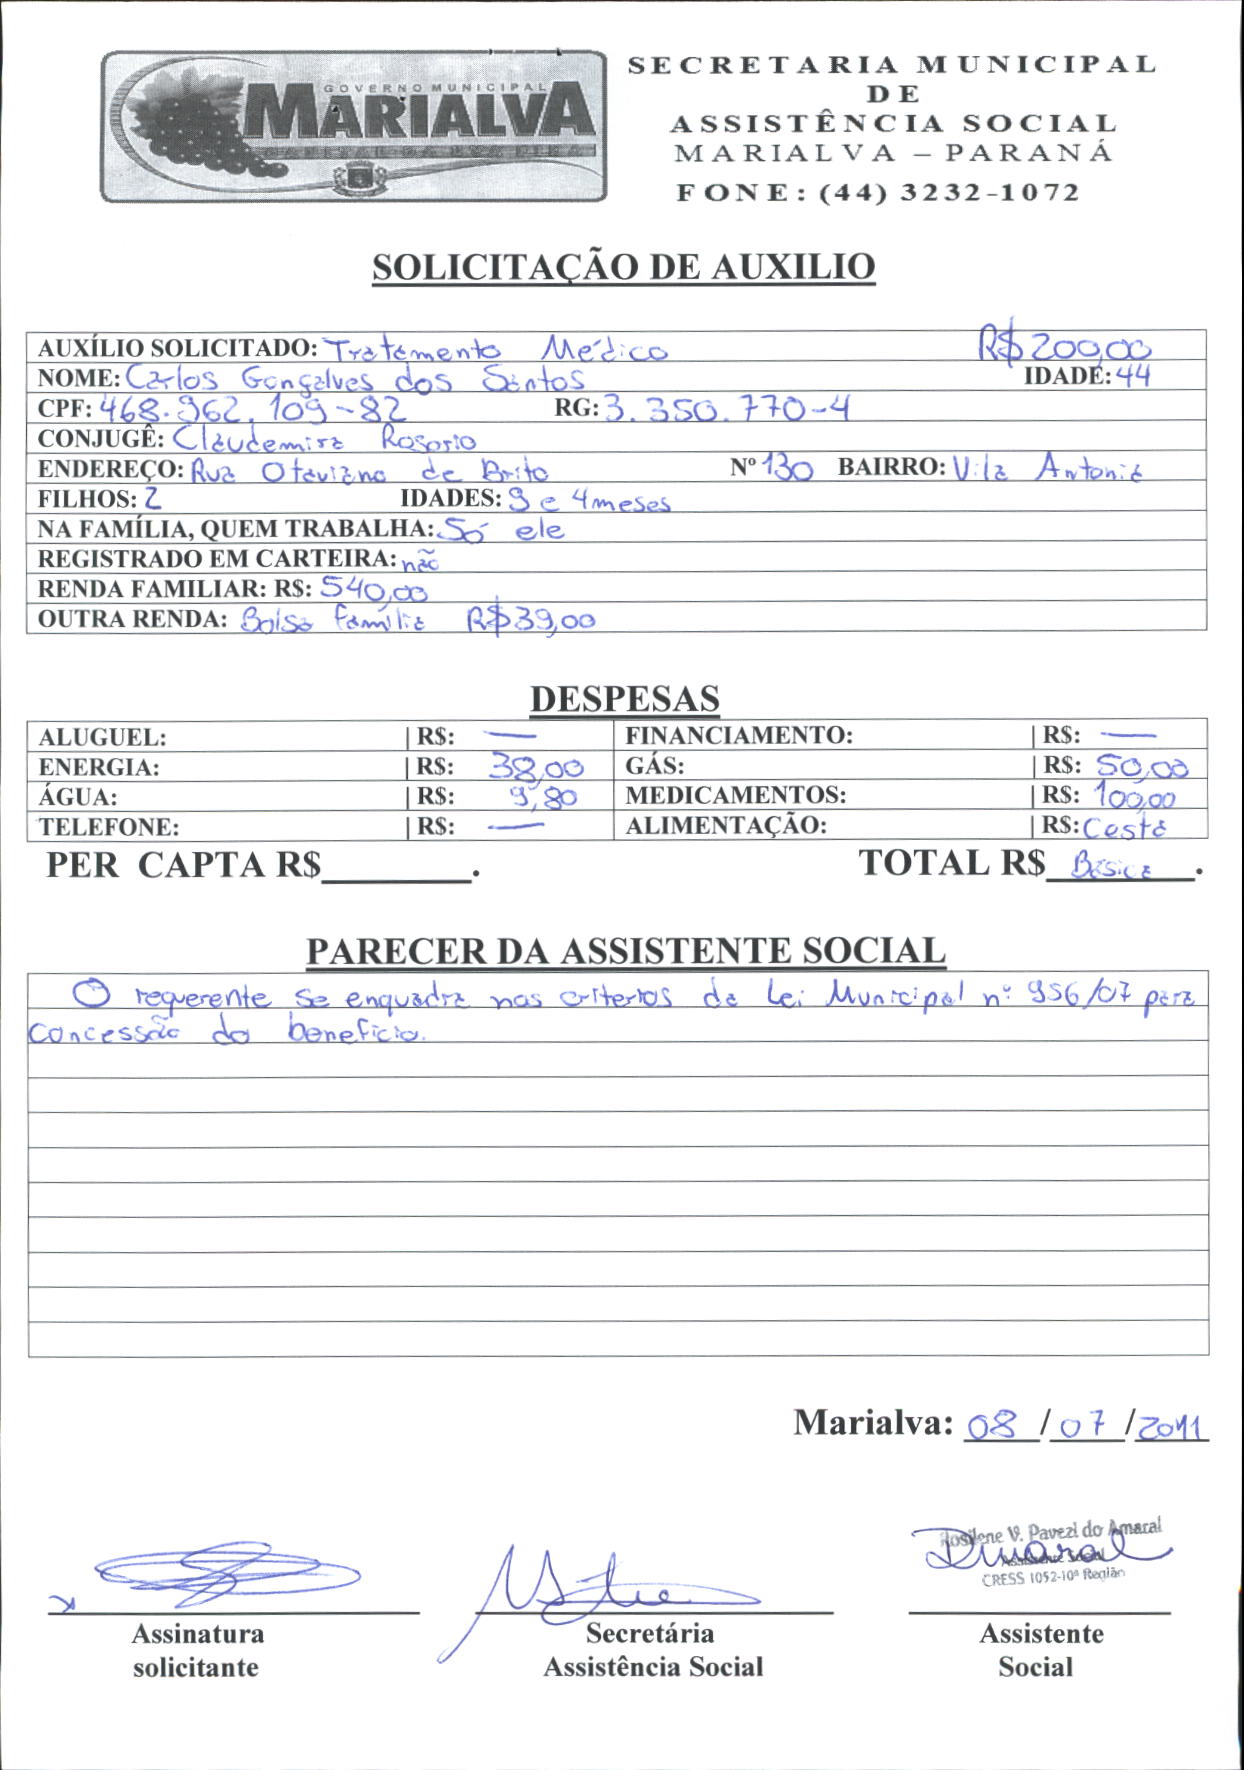 GOVERNO MUNICIPAL
MARIALVA
CAPITAL DA UVA FINA
SECRETARIA MUNICIPAL
DE
ASSISTÊNCIA SOCIAL
MARIALVA – PARANÁ
FONE: (44) 3232-1072
SOLICITAÇÃO DE AUXILIO
AUXÍLIO SOLICITADO: Tratamento Médico R$ 200,00
NOME: Carlos Gonçalves dos Santos IDADE: 44
CPF: 468.962.109-82 RG: 3.350.770-4
CONJUGÊ: Claudemira Rosorio
ENDEREÇO: Rua Otaviano de Brito Nº 130 BAIRRO: Vila Antonia
FILHOS: 2 IDADES: 9 e 4 meses
NA FAMÍLIA, QUEM TRABALHA: Só ele
REGISTRADO EM CARTEIRA: não
RENDA FAMILIAR: R$: 540,00
OUTRA RENDA: Bolsa família R$ 39,00
DESPESAS
ALUGUEL: | R$: — FINANCIAMENTO: | R$: —
ENERGIA: | R$: 38,00 GÁS: | R$: 50,00
ÁGUA: | R$: 9,80 MEDICAMENTOS: | R$: 100,00
TELEFONE: | R$: — ALIMENTAÇÃO: | R$: Cesta
PER CAPTA R$________. TOTAL R$ Básica.
PARECER DA ASSISTENTE SOCIAL
O requerente se enquadra nas criterios da Lei Municipal nº 956/07 para
concessão do beneficio.
Marialva: 08 / 07 / 2011
Rosilene V. Pavezi do Amaral
Assistente Social
CRESS 1052-10ª Região
Assinatura Secretária Assistente
solicitante Assistência Social Social